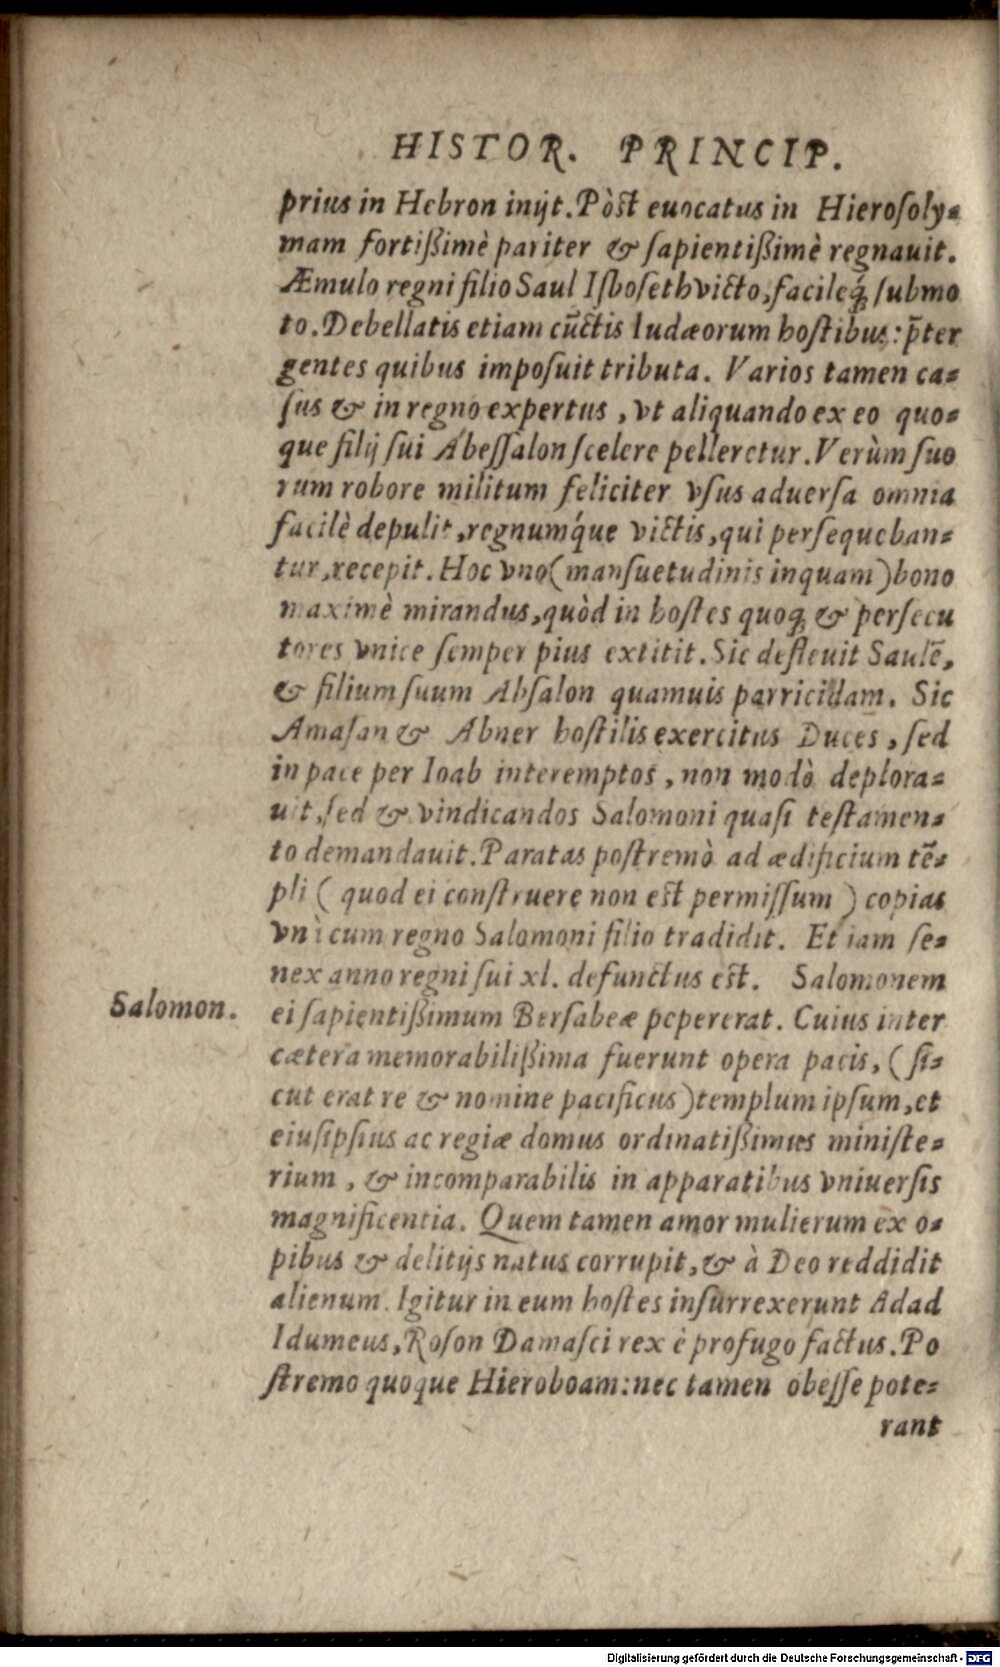 HISTOR. PRINCIP.
prius in Hebron inijt. Pòst euocatus in Hierosoly-
mam fortißimè pariter & sapientißimè regnauit.
Æmulo regni filio Saul Isboseth victo, facileq́; submo
to. Debellatis etiam cũctis Iudæorum hostibus: p̃ter
gentes quibus imposuit tributa. Varios tamen ca-
sus & in regno expertus, vt aliquando ex eo quo-
que filij sui Abessalon scelere pelleretur. Verùm suo
rum robore militum feliciter vsus aduersa omnia
facilè depulit, regnumq́ue victis, qui persequeban-
tur, recepit. Hoc vno (mansuetudinis inquam) bono
maximè mirandus, quòd in hostes quoq; & persecu
tores vnice semper pius extitit. Sic defleuit Saulẽ,
& filium suum Absalon quamuis parricidam. Sic
Amasan & Abner hostilis exercitus Duces, sed
in pace per Ioab interemptos, non modò deplora-
uit, sed & vindicandos Salomoni quasi testamen-
to demandauit. Paratas postremò ad ædificium tẽ-
pli ( quod ei construere non est permissum ) copias
vnà cum regno Salomoni filio tradidit. Et iam se-
nex anno regni sui xl. defunctus est. Salomonem
Salomon.
ei sapientißimum Bersabeæ pepererat. Cuius inter
cætera memorabilißima fuerunt opera pacis, ( si-
cut erat re & nomine pacificus) templum ipsum, et
eiusipsius ac regiæ domus ordinatißimus ministe-
rium, & incomparabilis in apparatibus vniuersis
magnificentia. Quem tamen amor mulierum ex o-
pibus & delitijs natus corrupit, & à Deo reddidit
alienum. Igitur in eum hostes insurrexerunt Adad
Idumeus, Roson Damasci rex è profugo factus. Po
stremo quoque Hieroboam: nec tamen obesse pote-
rant
Digitalisierung gefördert durch die Deutsche Forschungsgemeinschaft - DFG